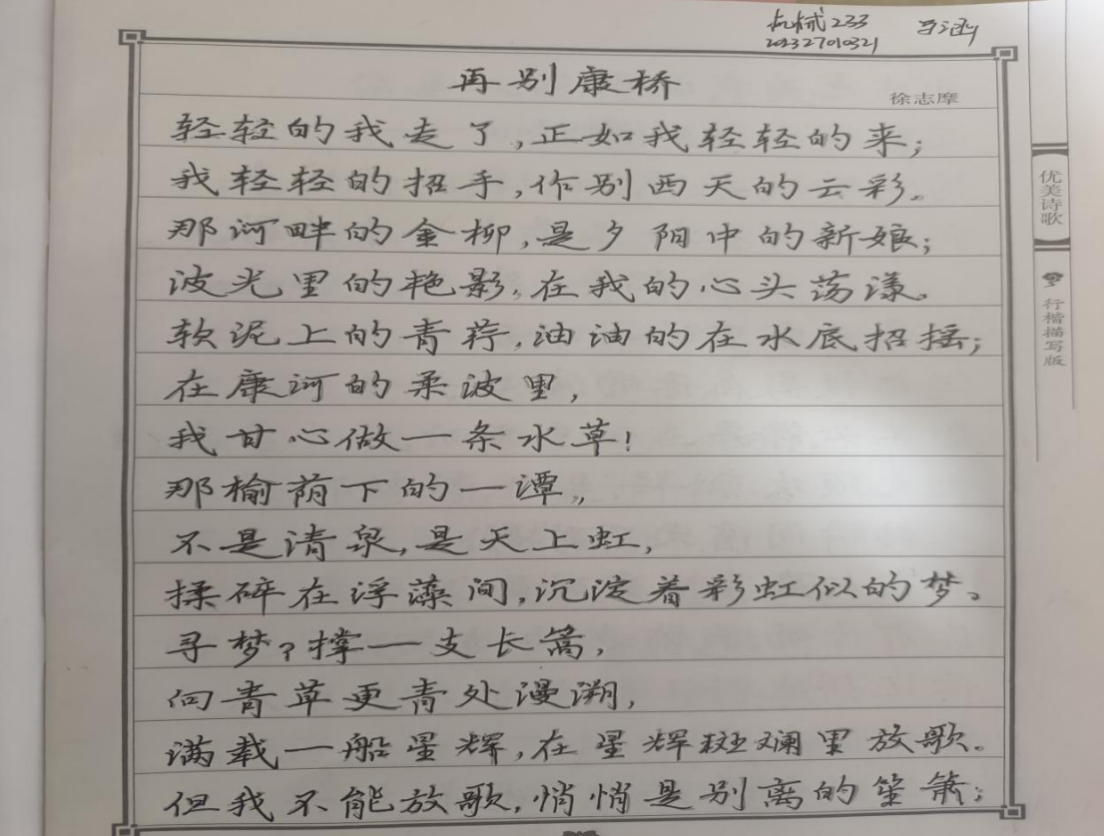 机械233
202327010321
再别康桥
徐志摩
轻轻的我走了,正如我轻轻的来;
我轻轻的招手,作别西天的云彩。
那河畔的金柳,是夕阳中的新娘;
波光里的艳影,在我的心头荡漾。
软泥上的青荇,油油的在水底招摇;
在康河的柔波里,
我甘心做一条水草!
那榆荫下的一潭,
不是清泉,是天上虹,
揉碎在浮藻间,沉淀着彩虹似的梦。
寻梦?撑一支长篙,
向青草更青处漫溯,
满载一船星辉,在星辉斑斓里放歌。
但我不能放歌,悄悄是别离的笙箫;
优美诗歌
行楷描写版